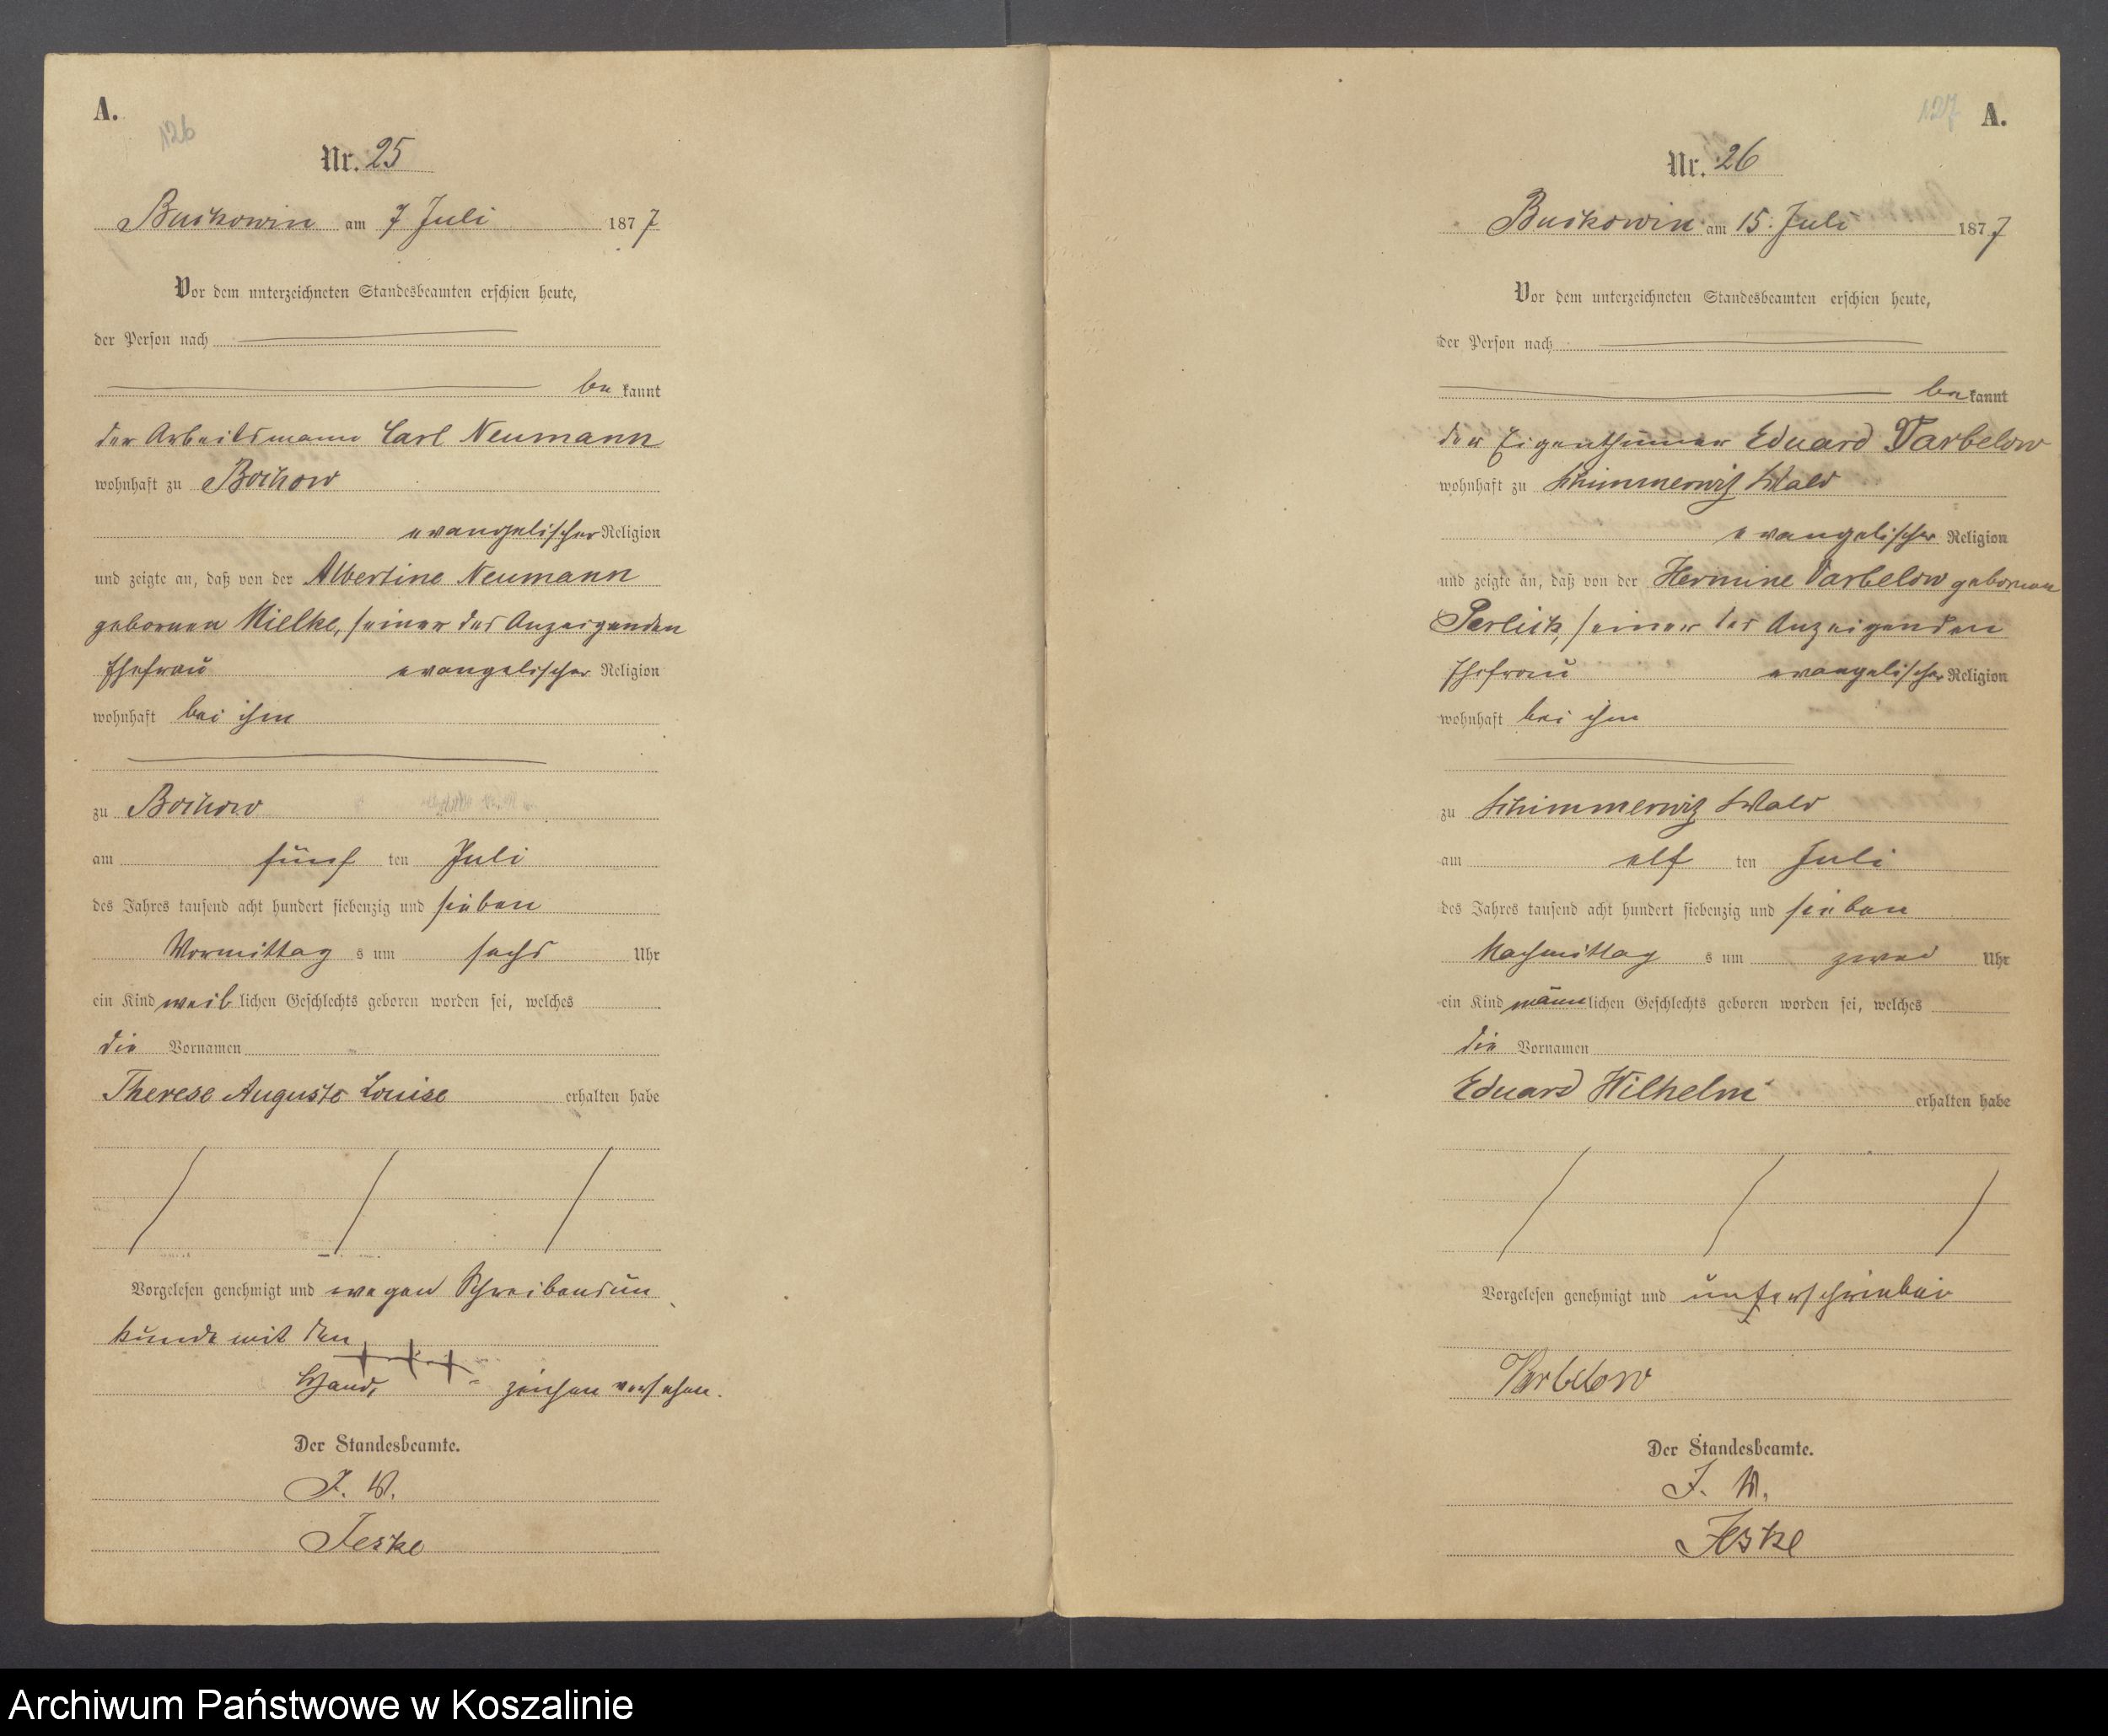 A.
126
Nr. 25
Buckowin am 7 Juli 1877
Vor dem unterzeichneten Standesbeamten erschien heute,
der Person nach
be kannt
der Arbeitsmann Carl Neumann
wohnhaft zu Bochow
evangelischer Religion
und zeigte an, daß von der Albertine Neumann
gebornen Mielke, seiner des Anzeigenden
Ehefrau evangelischer Religion
wohnhaft bei ihm
zu Bochow
am fünf ten Juli
des Jahres tausend acht hundert siebenzig und sieben
Vormittag s um sechs Uhr
ein Kind weib lichen Geschlechts geboren worden sei, welches
die Vornamen
Therese Auguste Louise erhalten habe
Vorgelesen genehmigt und wegen Schreibensun
kunde mit den
+ + +
Hand, zeichen versehen.
Der Standesbeamte.
J. V.
Jeske
127
A.
Nr. 26
Buckowin am 15. Juli 1877
Vor dem unterzeichneten Standesbeamten erschien heute,
der Person nach
be kannt
der Eigenthümer Eduard Varbelow
wohnhaft zu Schimmerwitz Wald
evangelischer Religion
und zeigte an, daß von der Hermine Varbelow gebornen
Perlick, seiner des Anzeigenden
Ehefrau evangelischer Religion
wohnhaft bei ihm
zu Schimmerwitz Wald
am elf ten Juli
des Jahres tausend acht hundert siebenzig und sieben
Nachmittag s um zwei Uhr
ein Kind männ lichen Geschlechts geboren worden sei, welches
die Vornamen
Eduard Wilhelm erhalten habe
Vorgelesen genehmigt und unterschrieben
Varbelow
Der Standesbeamte.
J. V.
Jeske
Archiwum Państwowe w Koszalinie